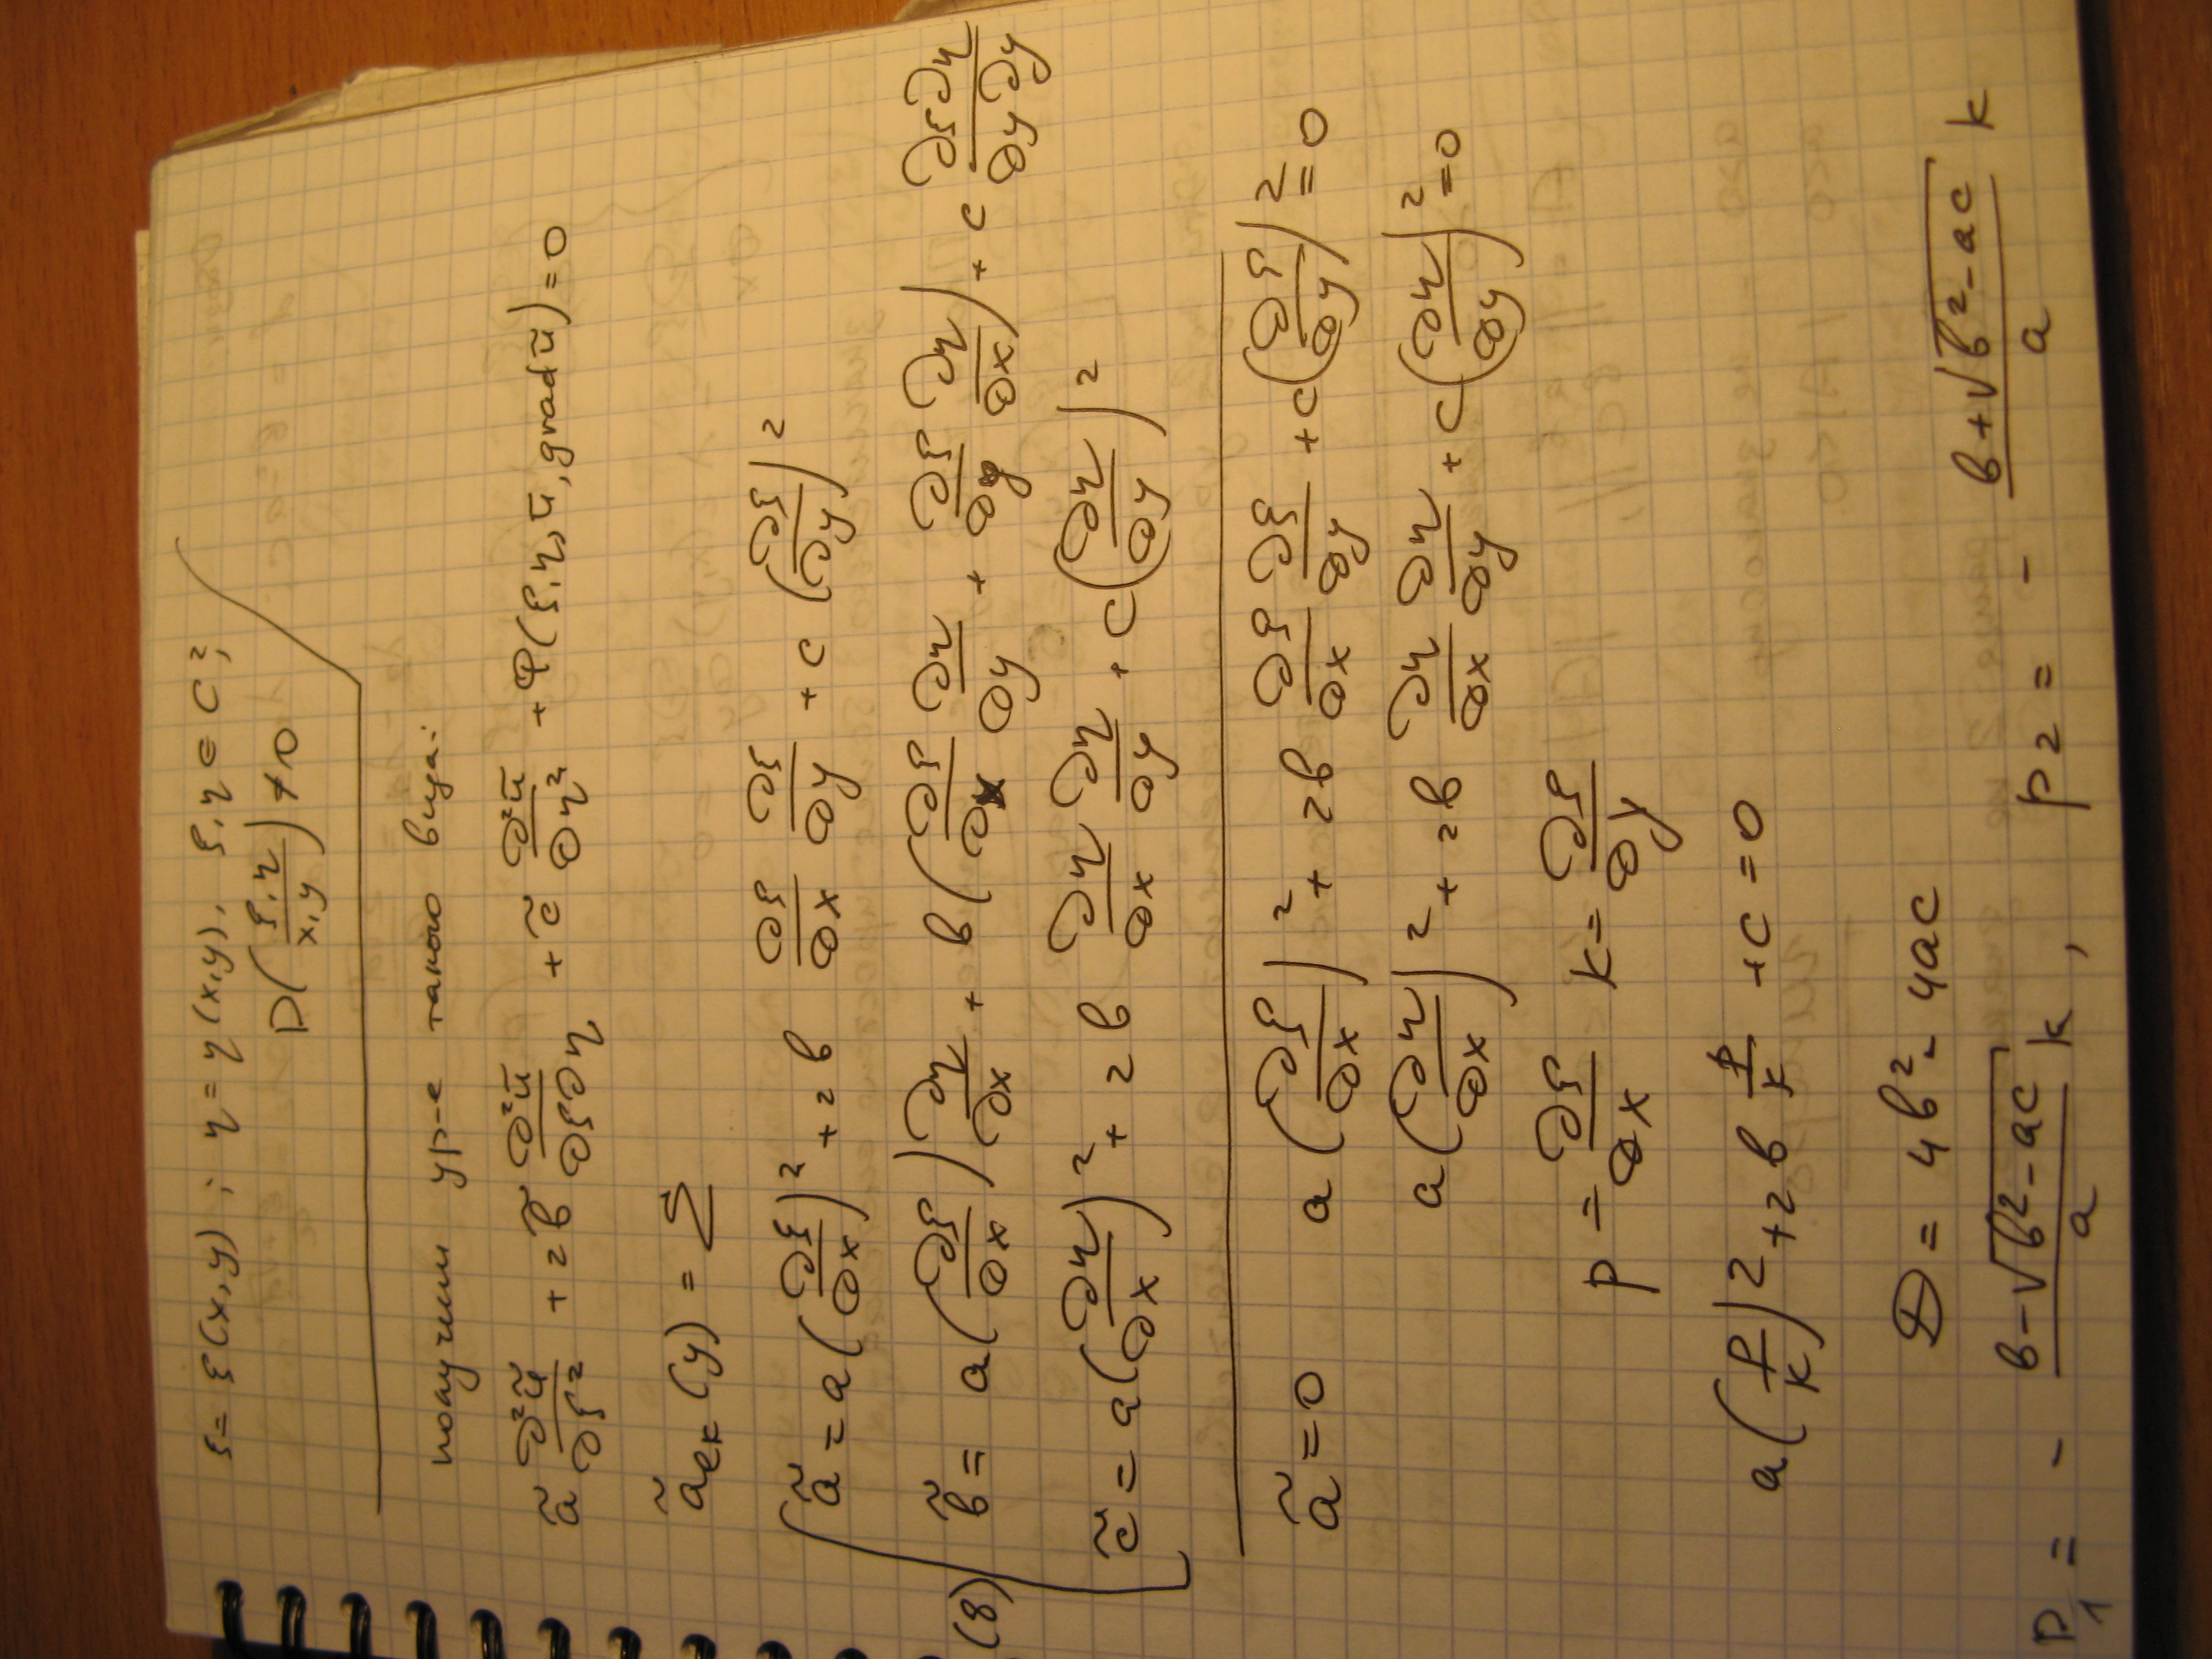 ξ = ξ(x,y) ; η = η(x,y), ξ,η ∈ C²;
D(ξ,η / x,y) ≠ 0
получим ур-е такого вида:
ã ∂²ũ/∂ξ² + 2b̃ ∂²ũ/∂ξ∂η + c̃ ∂²ũ/∂η² + Φ(ξ,η,ũ,grad ũ) = 0
ã_ek (y) = Σ
(8) ã = a(∂ξ/∂x)² + 2b ∂ξ/∂x ∂ξ/∂y + c(∂ξ/∂y)²
b̃ = a(∂ξ/∂x)∂η/∂x + b(∂ξ/∂x ∂η/∂y + ∂ξ/∂y ∂η/∂x) + c ∂ξ∂η/∂y∂y
c̃ = a(∂η/∂x)² + 2b ∂η/∂x ∂η/∂y + c(∂η/∂y)²
ã = 0 a(∂ξ/∂x)² + 2b ∂ξ/∂x ∂ξ/∂y + c(∂ξ/∂y)² = 0
a(∂η/∂x)² + 2b ∂η/∂x ∂η/∂y + c(∂η/∂y)² = 0
p = ∂ξ/∂x k = ∂ξ/∂y
a(p/k)² + 2b p/k + c = 0
D = 4b² - 4ac
p₁ = - b-√(b²-ac)/a k, p₂ = - b+√(b²-ac)/a k